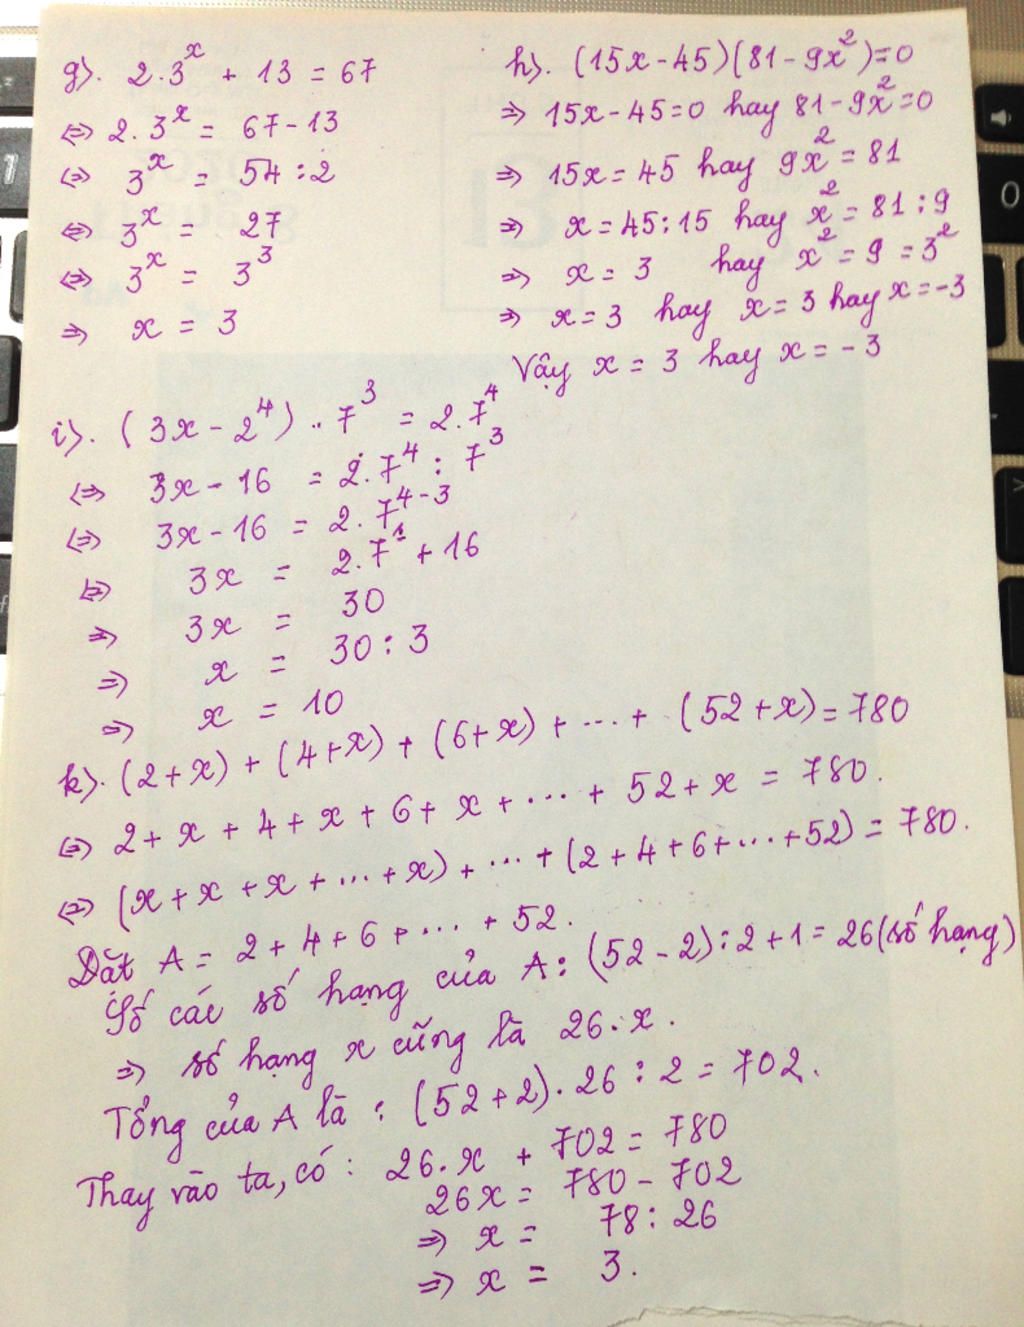 g). 2.3^x + 13 = 67
<=> 2.3^x = 67-13
<=> 3^x = 54 : 2
<=> 3^x = 27
<=> 3^x = 3^3
=> x = 3
h). (15x-45)(81-9x^2)=0
=> 15x-45=0 hay 81-9x^2=0
=> 15x=45 hay 9x^2=81
=> x=45:15 hay x^2=81:9
=> x=3 hay x^2=9=3^2
=> x=3 hay x=3 hay x=-3
Vậy x = 3 hay x = -3
i). (3x-2^4) .. 7^3 = 2.7^4
<=> 3x-16 = 2.7^4 : 7^3
<=> 3x-16 = 2.7^4-3
<=> 3x = 2.7^1 + 16
=> 3x = 30
=> x = 30 : 3
=> x = 10
k). (2+x) + (4+x) + (6+x) + ... + (52+x) = 780
<=> 2+x+4+x+6+x+ ... + 52+x = 780.
<=> (x+x+x+...+x) + ... + (2+4+6+...+52) = 780.
Đặt A = 2+4+6+ ... + 52.
Số các số hạng của A: (52-2):2+1=26(số hạng)
=> số hạng x cũng là 26.x.
Tổng của A là : (52+2).26 : 2 = 702.
Thay vào ta, có : 26.x + 702 = 780
26x = 780 - 702
=> x = 78 : 26
=> x = 3.